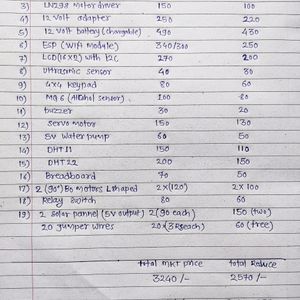 3) LN298 Motor driver 150 100
4) 12 Volt adapter 250 220
5) 12 volt battery (chargable) 490 430
6) ESP (Wifi Module) 340/300 250
7) LCD(16x2) with I2C 270 200
8) Ultrasonic sensor 40 80
9) 4x4 keypad 80 60
10) MQ6 (Alcohol sensor) 100 80
11) buzzer 30 20
12) Servo motor 150 130
13) 5V Water pump 60 50
14) DHT11 150 110
15) DHT22 200 150
16) Breadboard 70 50
17) 2 (90°) Bo motors L shaped 2x(120) 2x100
18) Relay Switch 80 60
19) 2 Solar pannel (5V output) 2(90 each) 150 (two)
20 Jumper wires 20x(3Rs each) 60 (free)
total MKT price total Reduce
3240 /- 2570 /-